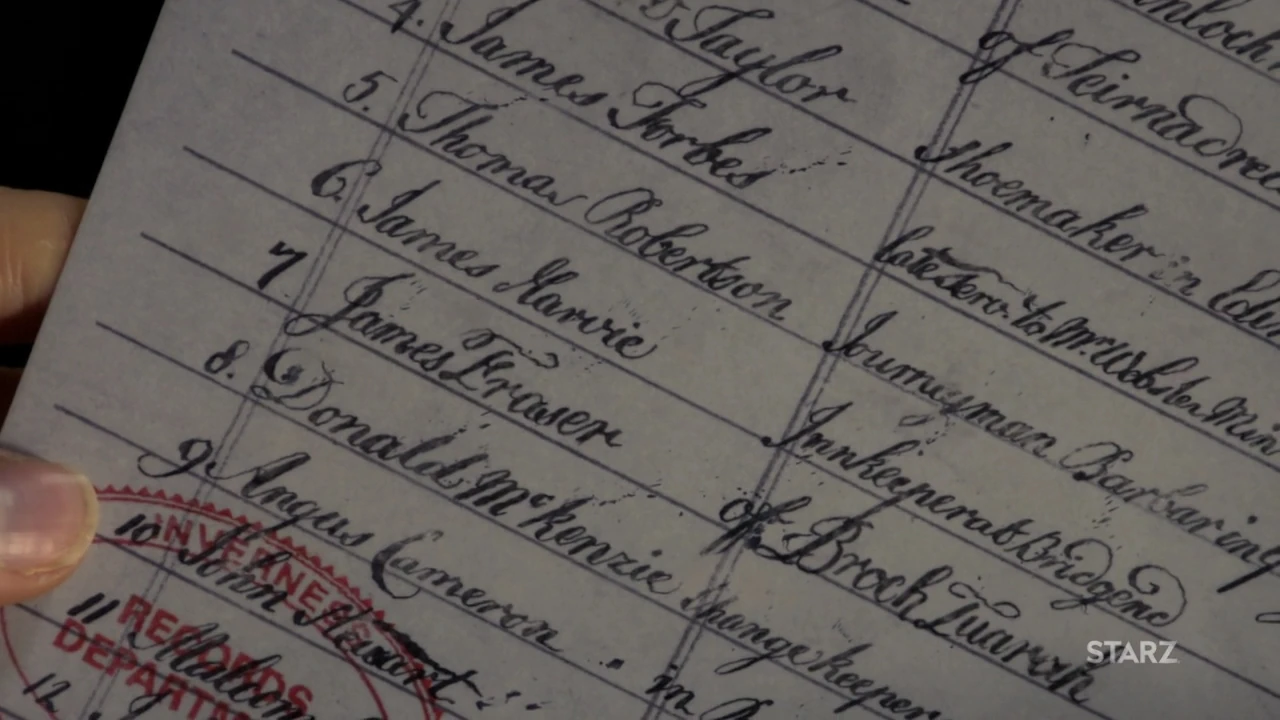 Taylor of
4. James Forbes Shoemaker in
5. Thomas Robertson late Serv. to Mr. Webster
6. James Harvie Journeyman Barbar in
7 James Fraser Innkeeper at Bridgend
8. Donald McKenzie of Broch Tuarach
9. Angus Cameron Changekeeper
10 John Stewart in
11 Malcom
12.
INVERNESS
RECORDS
STARZ